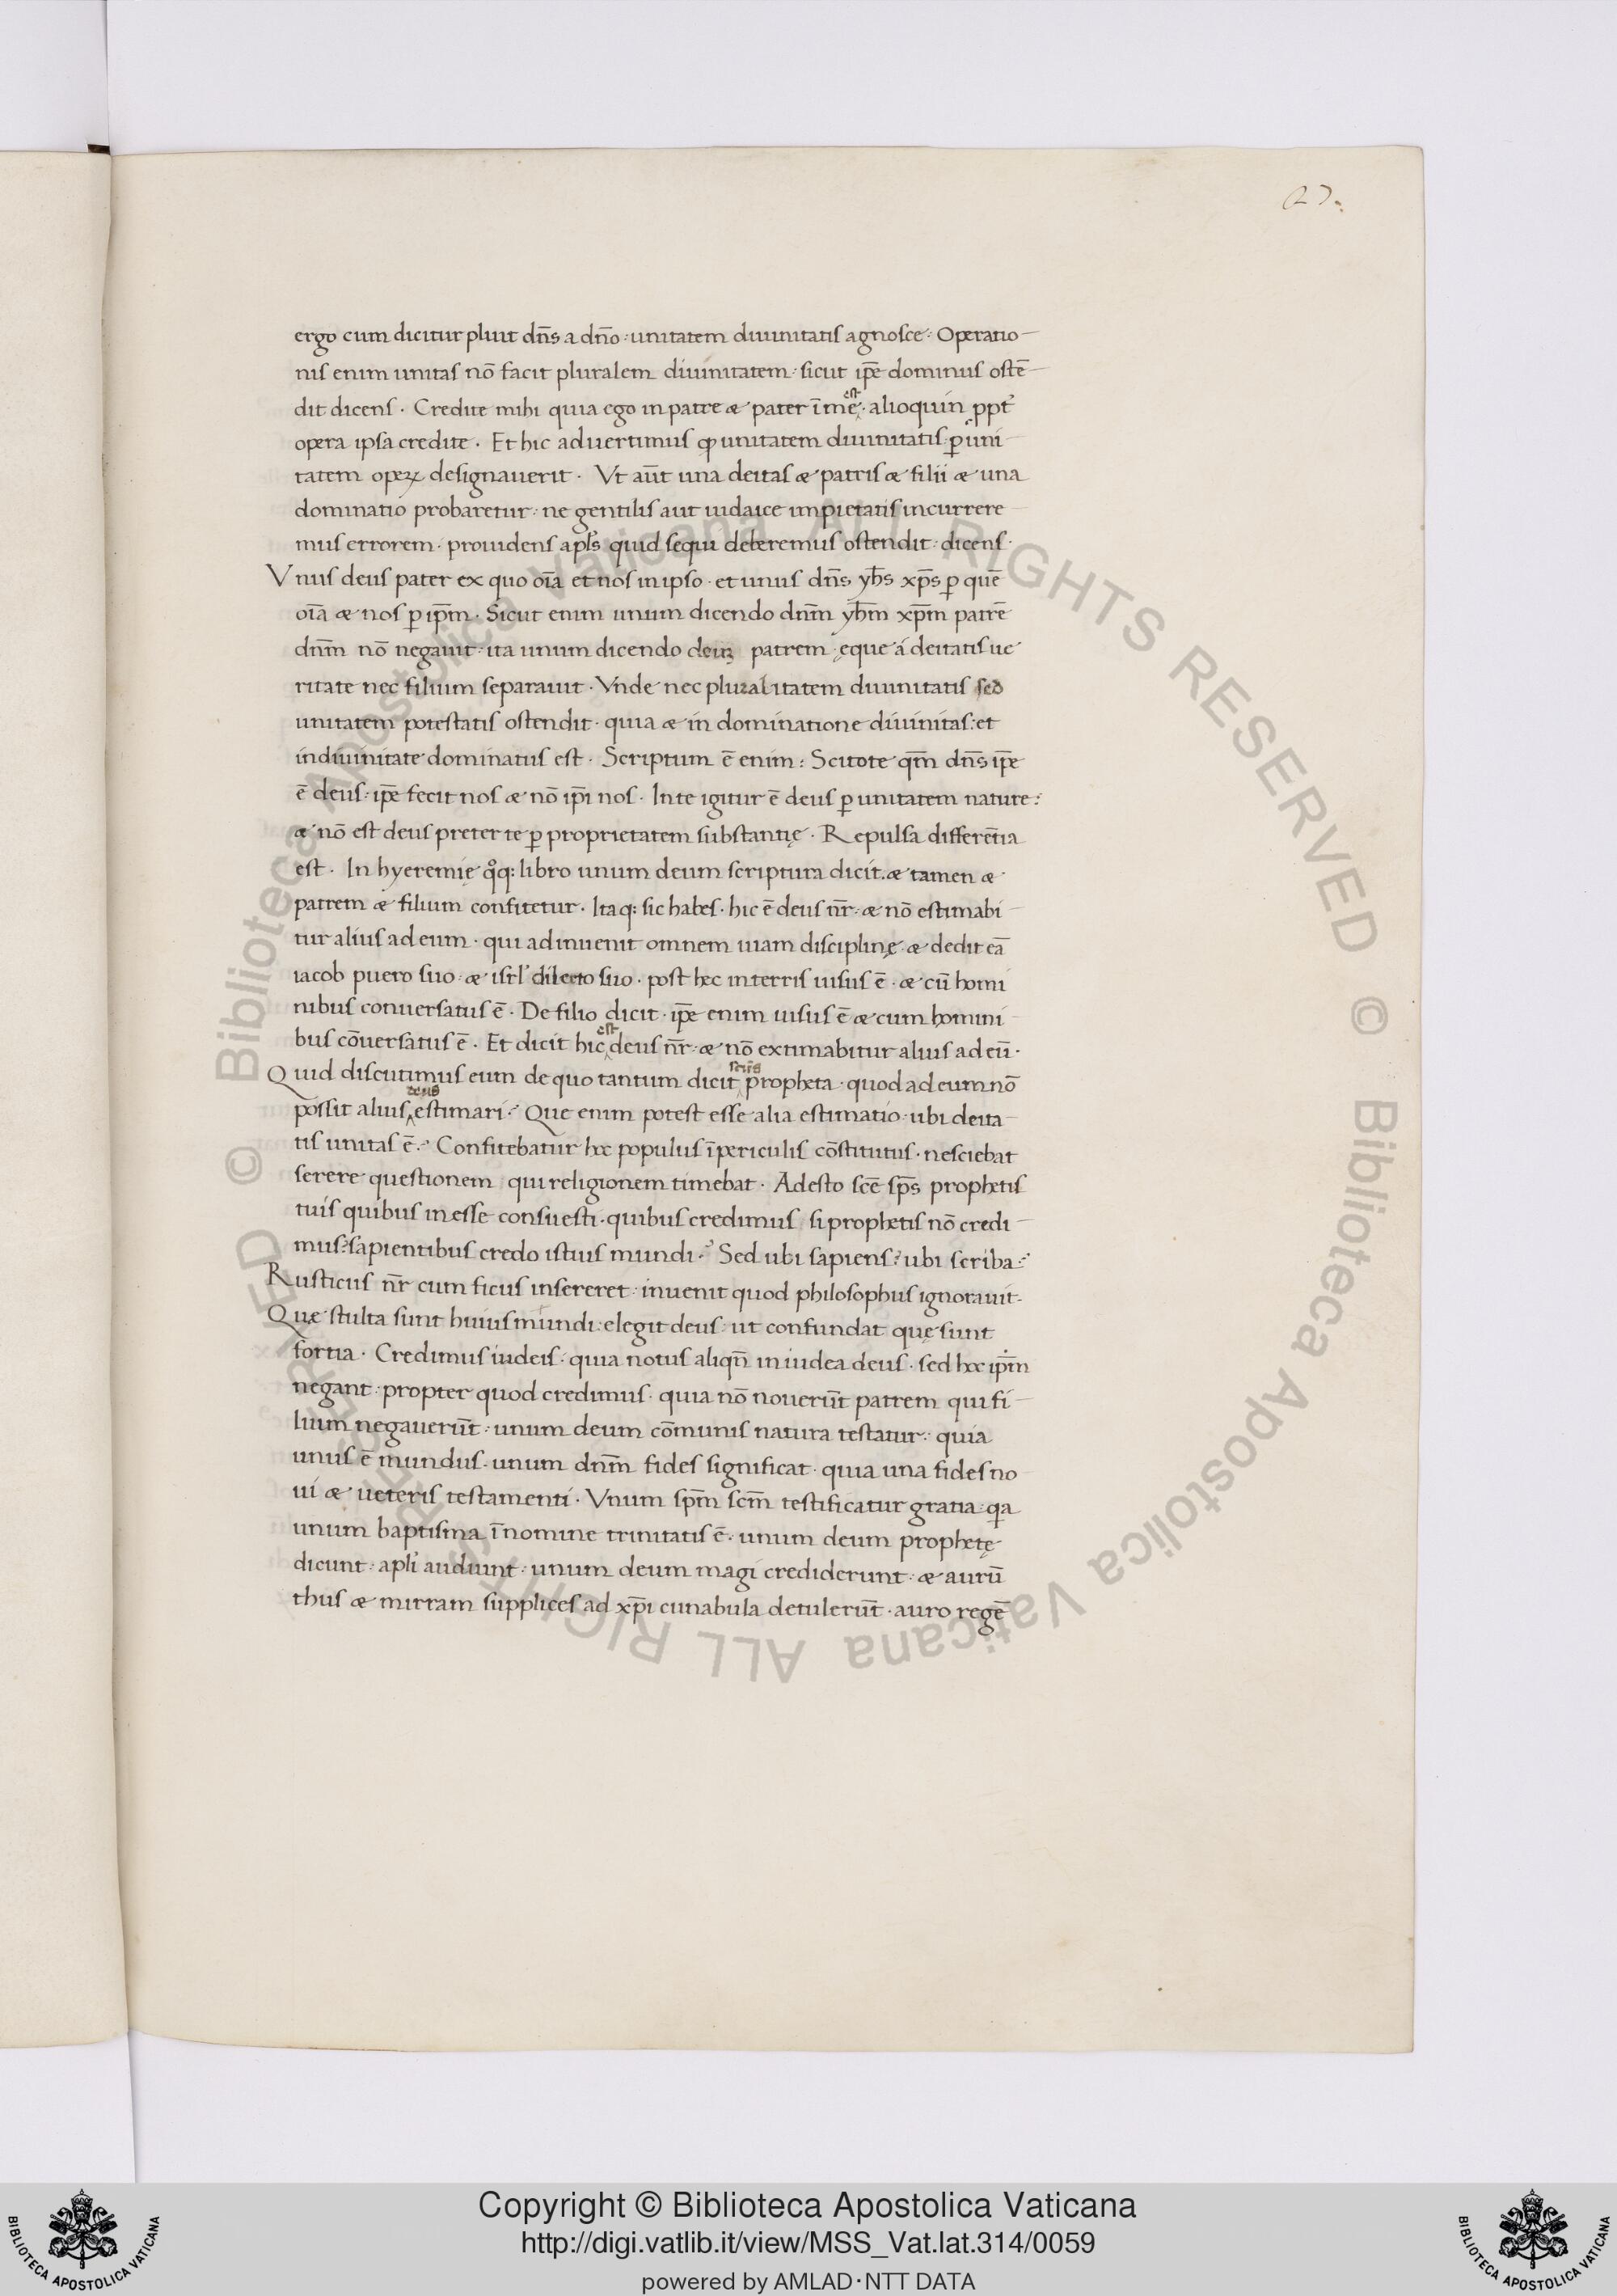 27.
ergo cum dicitur pluit dn̄s a dn̄o · unitatem diuinitatis agnosce · Operatio
nis enim unitas nō facit pluralem diuinitatem · sicut ip̄e dominus ostē
dit dicens · Credite mihi quia ego in patre æ pater ī me est · alioquin ꝓpt̄
opera ipsa credite · Et hic aduertimus ꝙ unitatem diuinitatis ꝑ uni
tatem opeꝝ designauerit · Vt aūt una deitas æ patris æ filii æ una
dominatio probaretur · ne gentilis aut iudaice impietatis incurrere
mus errorem · prouidens apl̄s quid sequi deberemus ostendit · dicens ·
Vnus deus pater ex quo oīa et nos in ipso · et unus dn̄s yh̄s xp̄s ꝑ quē
oīa æ nos ꝑ ip̄m · Sicut enim unum dicendo dnm̄ yh̄m xp̄m patrē
dnm̄ nō negauit · ita unum dicendo deum patrem · ęque á deitatis ue
ritate nec filium separauit · Vnde nec pluralitatem diuinitatis sed
unitatem potestatis ostendit · quia æ in dominatione diuinitas : et
indiuinitate dominatus est · Scriptum ē enim : Scitote qm̄ dn̄s ip̄e
ē deus : ip̄e fecit nos æ nō ip̄i nos · Inte igitur ē deus ꝑ unitatem nature :
æ nō est deus preter te ꝑ proprietatem substantię · Repulsa differētia
est · In hyeremię qͦq: libro unum deum scriptura dicit · æ tamen æ
patrem æ filium confitetur · Itaq: sic habes · hic ē deus nr̄ · æ nō estimabi
tur alius ad eum · qui adinuenit omnem uiam disciplinę æ dedit eā
iacob puero suo · æ isrl' dilecto suo · post hec in terris uisus ē · æ cū homi
nibus conuersatus ē · De filio dicit · ip̄e enim uisus ē æ cum homini
bus cōuersatus ē · Et dicit hic est deus nr̄ · æ nō extimabitur alius ad eū ·
Quid discutimus eum de quo tantum dicit propheta · quod ad eum nō
possit alius deus estimari ? Que enim potest esse alia estimatio · ubi deita
tis unitas ē ? Confitebatur hoc populus ī periculis cōstitutus · nesciebat
serere questionem qui religionem timebat · Adesto scē sp̄s prophetis
tuis quibus in esse consuesti · quibus credimus si prophetis nō credi
mus ? sapientibus credo istius mundi ? Sed ubi sapiens ? ubi scriba ?
Rusticus nr̄ cum ficus insereret · inuenit quod philosophus ignorauit ·
Quę stulta sunt huius mundi · elegit deus · ut confundat quę sunt
fortia · Credimus iudeis · quia notus aliqn̄ in iudea deus · sed hoc ip̄m
negant · propter quod credimus · quia nō nouerūt patrem qui fi
lium negauerūt · unum deum cōmunis natura testatur · quia
unus ē mundus · unum dnm̄ fides significat · quia una fides no
ui æ ueteris testamenti · Vnum sp̄m scm̄ testificatur gratia · qa
unum baptisma ī nomine trinitatis ē · unum deum prophetę
dicunt · apl̄i audiunt · unum deum magi crediderunt · æ aurū
thus æ mirram supplices ad xp̄i cunabula detulerūt · auro regē
© Biblioteca Apostolica Vaticana ALL RIGHTS RESERVED © Biblioteca Apostolica Vaticana ALL RIGHTS RESERVED
Copyright © Biblioteca Apostolica Vaticana
http://digi.vatlib.it/view/MSS_Vat.lat.314/0059
powered by AMLAD·NTT DATA
BIBLIOTECA APOSTOLICA VATICANA
BIBLIOTECA APOSTOLICA VATICANA